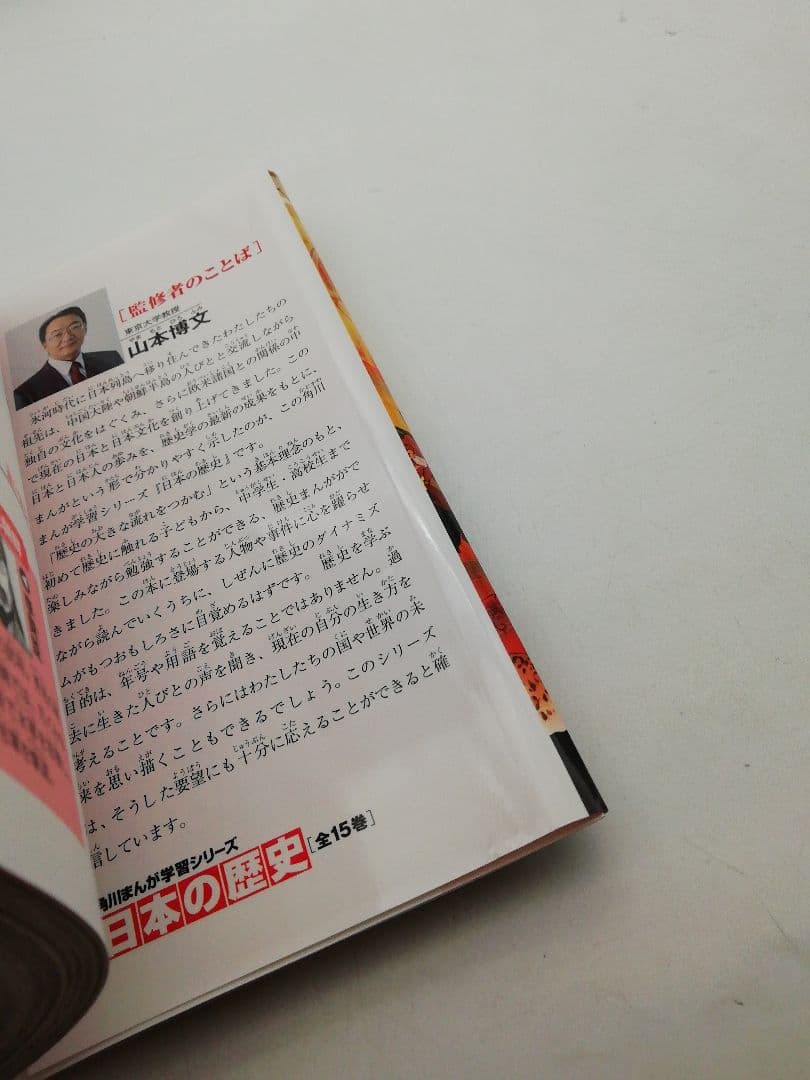 [監修者のことば]
東京大学教授
山本博文
氷河時代に日本列島へ移り住んできたわたしたちの
祖先は、中国大陸や朝鮮半島の人びとと交流しながら
独自の文化をはぐくみ、さらに欧米諸国との関係の中
で現在の日本と日本文化を創り上げてきました。この
日本と日本人の歩みを、歴史学の最新の成果をもとに、
まんがという形で分かりやすく示したのが、この角川
まんが学習シリーズ『日本の歴史』です。
「歴史の大きな流れをつかむ」という基本理念のもと、
初めて歴史に触れる子どもから、中学生・高校生まで
楽しみながら勉強することができる、歴史まんががで
きました。この本に登場する人物や事件に心を躍らせ
ながら読んでいくうちに、しぜんに歴史のダイナミズ
ムがもつおもしろさに目覚めるはずです。歴史を学ぶ
目的は、年号や用語を覚えることではありません。過
去に生きた人びとの声を聞き、現在の自分の生き方を
考えることです。さらにはわたしたちの国や世界の未
来を思い描くこともできるでしょう。このシリーズ
は、そうした要望にも十分に応えることができると確
信しています。
角川まんが学習シリーズ
日本の歴史[全15巻]